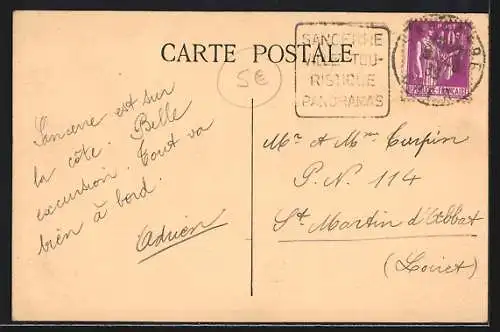 CARTE POSTALE
5€
SANCERRE
VILLE TOU-
RISTIQUE
PANORAMAS
40c
Sancerre est sur
la côte. Belle
excursion. Tout va
bien à bord.
Adrien
Mr & Mme Turpin
P.N. 114
St Martin d'Abbat
(Loiret)